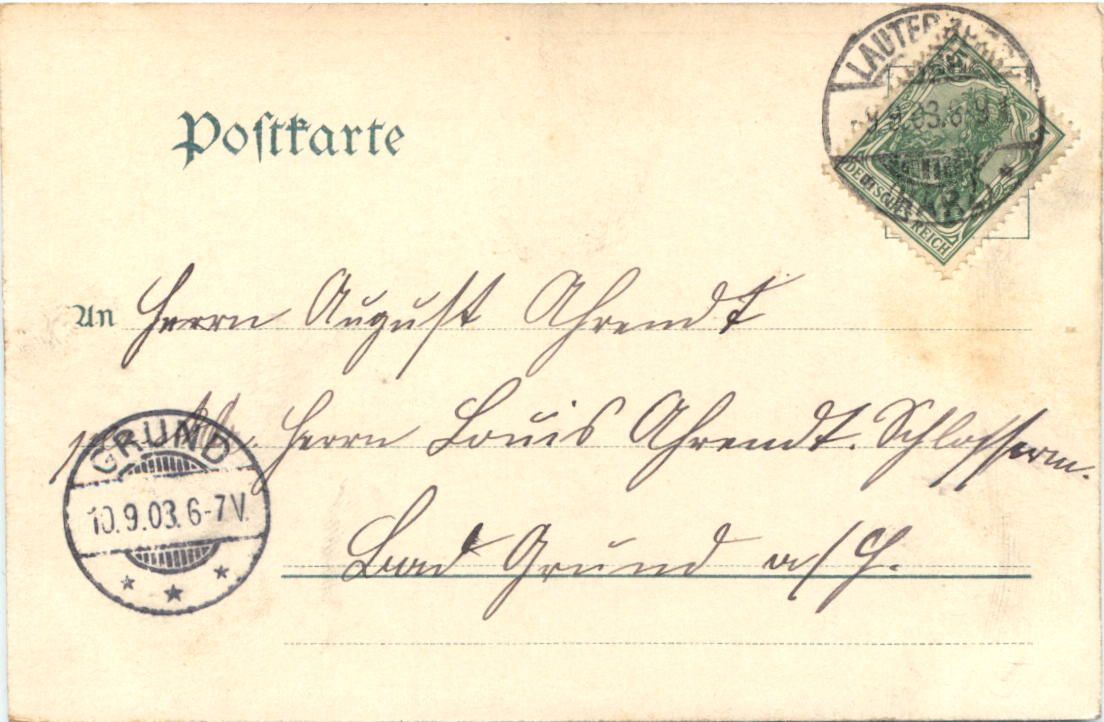 Postkarte
LAUTERBERG
9.03.8-9
(HARZ)
DEUTSCHES REICH
An Herrn August Ahrendt
Herrn Louis Ahrendt. Schlosserm.
GRUND
10.9.03.6-7V.
Bad Grund a/H.